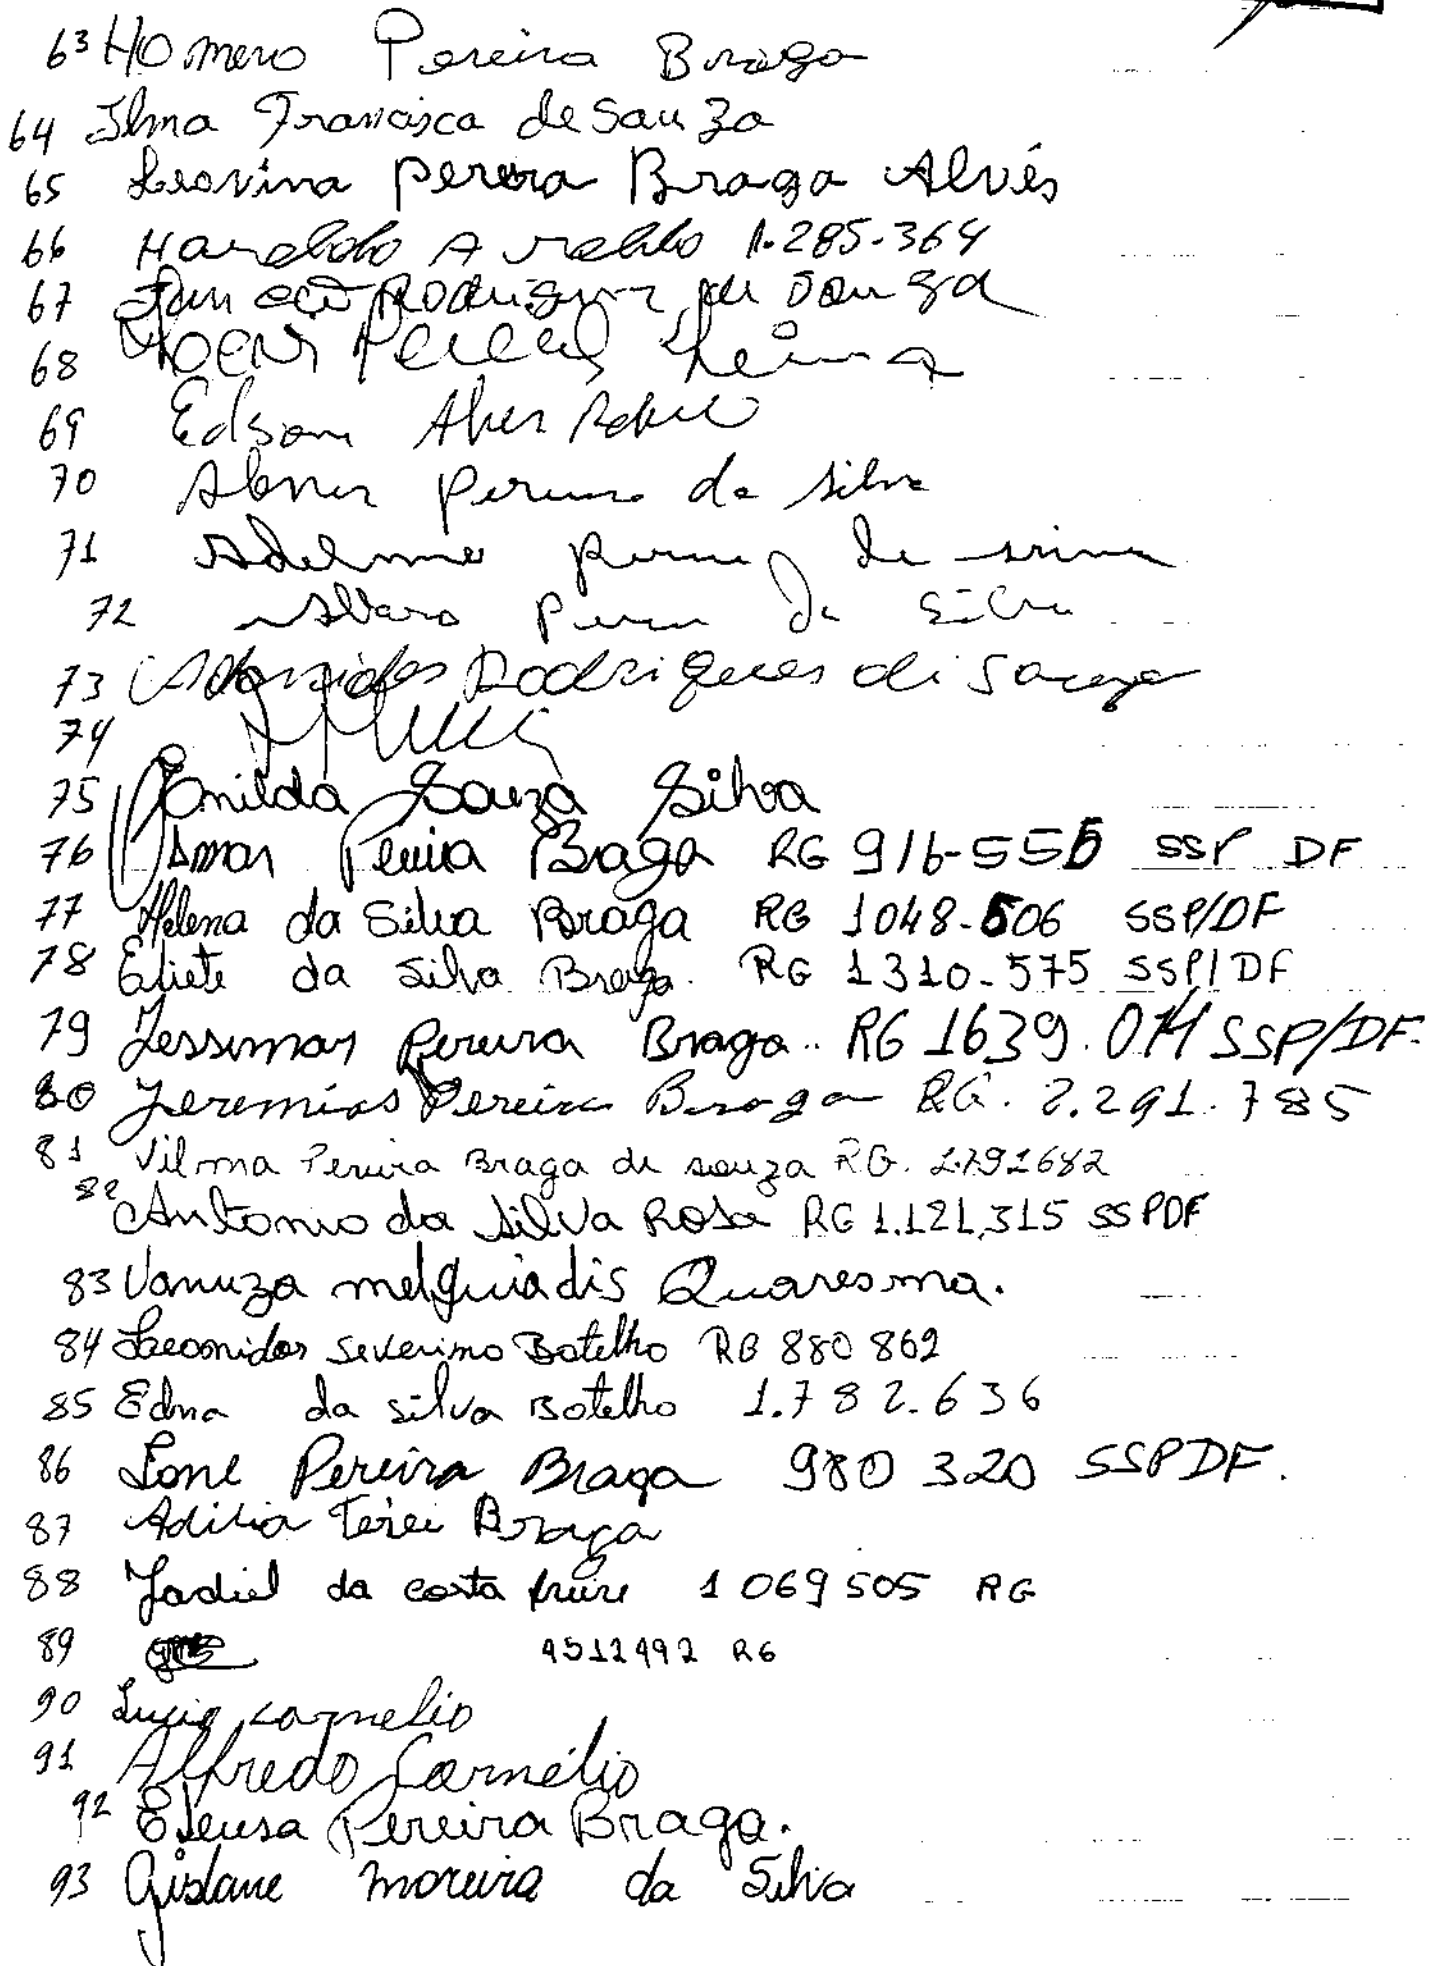 63 Homero Pereira Braga
64 Ilma Francisca de Sauza
65 Leovina pereira Braga Alvés
66 Haroldo 1.285.364
67 Rodrigues de Souza
68
69 Edson Alves
70 Abner Pereira da Silva
71 Adelmo
72 Alvaro da Silva
73 Rodrigues di Souza
74
75 Enilda Souza Silva
76 Osmar Pereira Braga RG 916-555 SSP DF
77 Helena da Silva Braga RG 1048-506 SSP/DF
78 Eliete da Silva Braga. RG 1310-575 SSP/DF
79 Jessimar Pereira Braga RG 1639.014 SSP/DF.
80 Jeremias Pereira Braga RG. 2.291.785
81 Vilma Pereira Braga de souza RG.
82 Antonio da Silva Rosa RG 1.121.315 SSPDF
83 Vanuza melquiadis Quaresma.
84 Leonidas Severino Botelho RG 880 862
85 Edna da silva Botelho 1.782.636
86 Ione Pereira Braga 980 320 SSPDF.
87 Braga
88 Jadiel da costa freire 1 069 505 RG
89 RG
90 Lucio Carmelio
91 Alfredo Carmélio
92 Eleusa Pereira Braga.
93 Gislane moreira da Silva